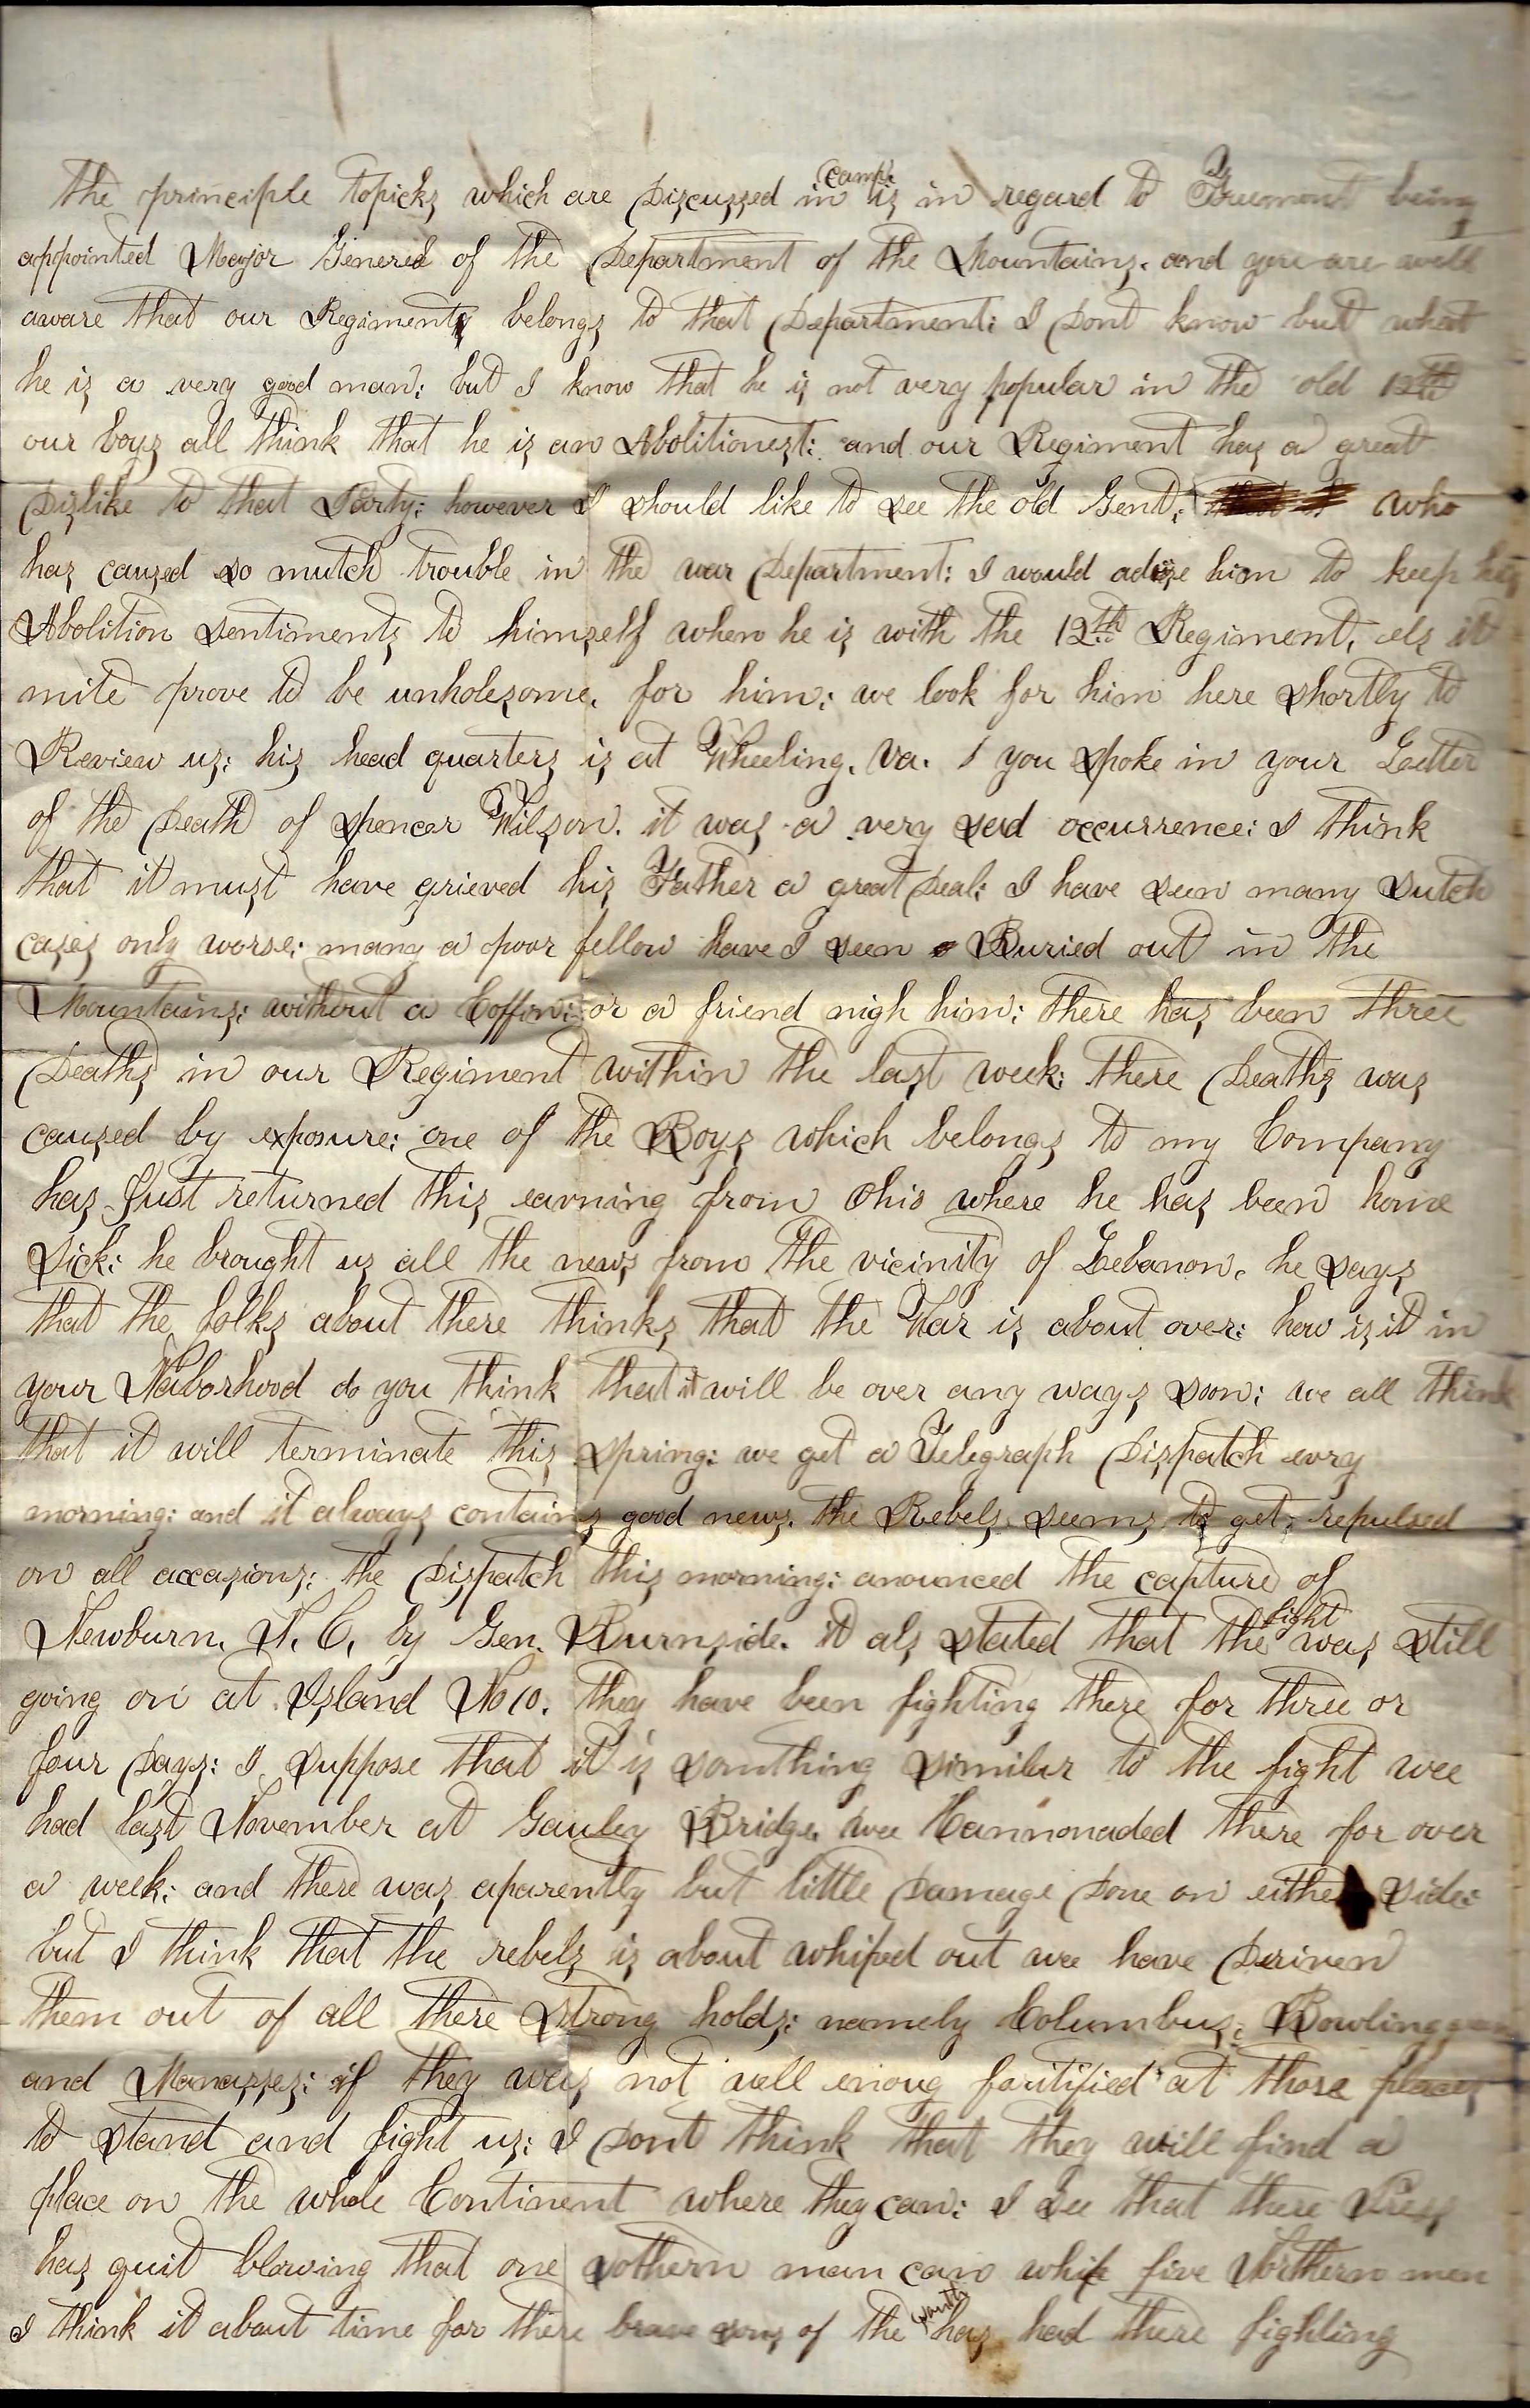 The principle topicks which are Discussed in camp is in regard to Freemont being
appointed Major General of the Department of the Mountains. and you are well
aware that our Regiment belongs to that Department: I Dont know but what
he is a very good man: but I know that he is not very popular in the old 12th
our boys all think that he is an Abolitionest: and our Regiment has a great
Dislike to that Party: however I should like to see the old Gent: who
has caused so mutch trouble in the war Department: I would advise him to keep his
Abolition sentiments to himself when he is with the 12th Regiment, els it
mite prove to be unholesome. for him: we look for him here shortly to
Review us: his head quarters is at Wheeling. Va. / you spoke in your Letter
of the Death of Spencer Wilson. it was a very sad occurrence: I think
that it must have grieved his Father a great Deal: I have seen many sutch
cases only worse: many a poor fellow have I seen Buried out in the
Mountains: without a Coffin: or a friend nigh him: there has been three
Deaths in our Regiment within the last week: there Deaths was
caused by exposure: one of the Boys which belongs to my Company
has Just returned this earning from Ohio where he has been home
sick: he brought us all the news from the vicinity of Lebanon. he says
that the folks about there thinks that the War is about over: how is it in
your Naborhood do you think that it will be over any ways soon: we all think
that it will terminate this spring: we get a Telegraph Dispatch evry
morning: and it always contains good news. the Rebels seems to get repulsed
on all accasions: the Dispatch this morning: anounced the capture of
Newburn. N. C. by Gen. Burnside. it als stated that the fight was still
going on at Island No 10. they have been fighting there for three or
four Days: I suppose that it is somthing similar to the fight wee
had last November at Gauley Bridge. wee Cannonaded there for over
a week: and there was aparently but little Damage Done on either side:
but I think that the rebels is about whiped out wee have Deriven
them out of all there strong holds: namely Columbus: Bowling green
and Manasses: if they was not well enoug fortified at those places
to stand and fight us: I Dont think that they will find a
place on the whole Continent where they can: I See that there Press
has quit blowing that one sothern man can whip five Northern men
I think it about time for there brave sons of the south has had there fighting